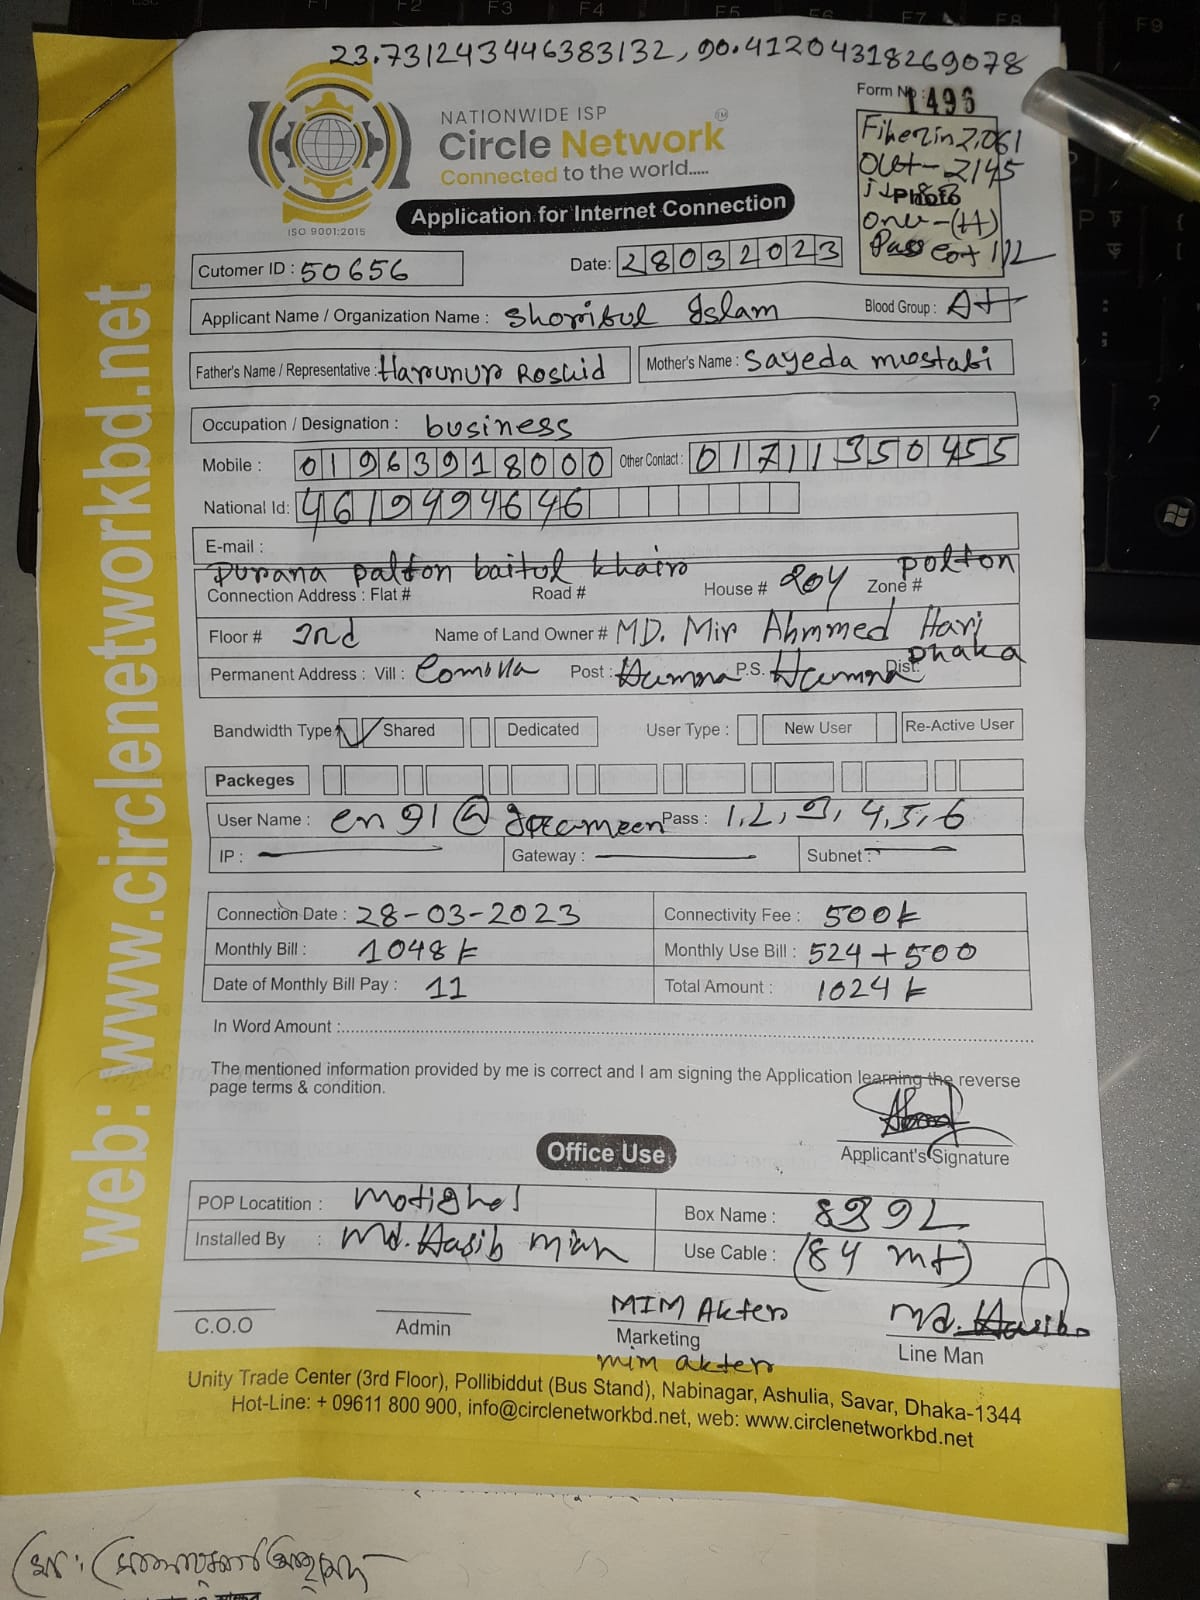 23.731243446383132, 90.41204318269078
Form No: 1496
NATIONWIDE ISP
Circle Network
Connected to the world.....
ISO 9001:2015
Application for Internet Connection
Fiber in 2061
Out - 2145
Photo
onu -
Cutomer ID : 50656
Date: 28032023
Applicant Name / Organization Name : Shoribul Islam
Blood Group : A+
Father's Name / Representative : Harunur Roshid
Mother's Name : Sayeda mostabi
Occupation / Designation : business
Mobile : 01963918000 Other Contact : 01711350455
National Id: 4619494646
E-mail :
Purana palton baitul khair polton
Connection Address : Flat # Road # House # 204 Zone #
Floor # 2nd Name of Land Owner # MD. Mir Ahmmed Harj
Permanent Address : Vill : Comilla Post : Humna P.S. Humna Dist. Dhaka
Bandwidth Type Shared Dedicated User Type : New User Re-Active User
Packeges
User Name : en91@ Pass : 1,2,3,4,5,6
IP : Gateway : Subnet :
Connection Date : 28-03-2023 Connectivity Fee : 500 t
Monthly Bill : 1048 t Monthly Use Bill : 524 + 500
Date of Monthly Bill Pay : 11 Total Amount : 1024 t
In Word Amount :
The mentioned information provided by me is correct and I am signing the Application learning the reverse
page terms & condition.
Applicant's Signature
Office Use
POP Locatition : Motighel Box Name :
Installed By : Md. Hasib Miah Use Cable : (84 mt)
MIM Akter Md. Hasib
C.O.O Admin Marketing Line Man
mim akter
Unity Trade Center (3rd Floor), Pollibiddut (Bus Stand), Nabinagar, Ashulia, Savar, Dhaka-1344
Hot-Line: + 09611 800 900, info@circlenetworkbd.net, web: www.circlenetworkbd.net
web: www.circlenetworkbd.net